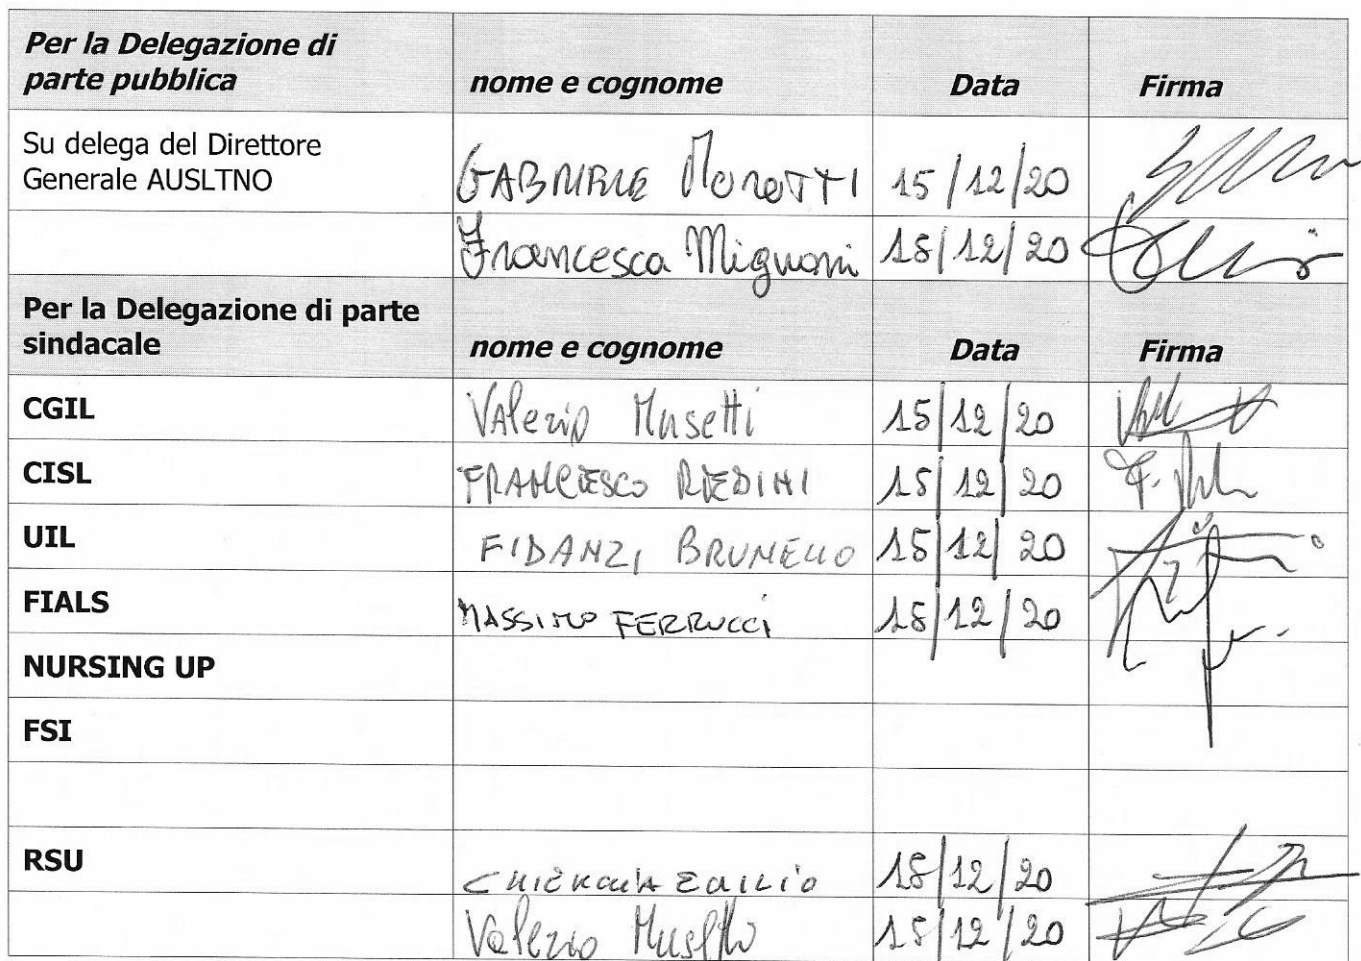 Per la Delegazione di
parte pubblica nome e cognome Data Firma
Su delega del Direttore
Generale AUSLTNO GABRIELE MOROTTI 15/12/20
Francesca Mignoni 15/12/20
Per la Delegazione di parte
sindacale nome e cognome Data Firma
CGIL Valerio Musetti 15/12/20
CISL FRANCESCO RIEDINI 15/12/20
UIL FIDANZI BRUNELLO 15/12/20
FIALS MASSIMO FERRUCCI 15/12/20
NURSING UP
FSI
RSU 15/12/20
Valerio 15/12/20